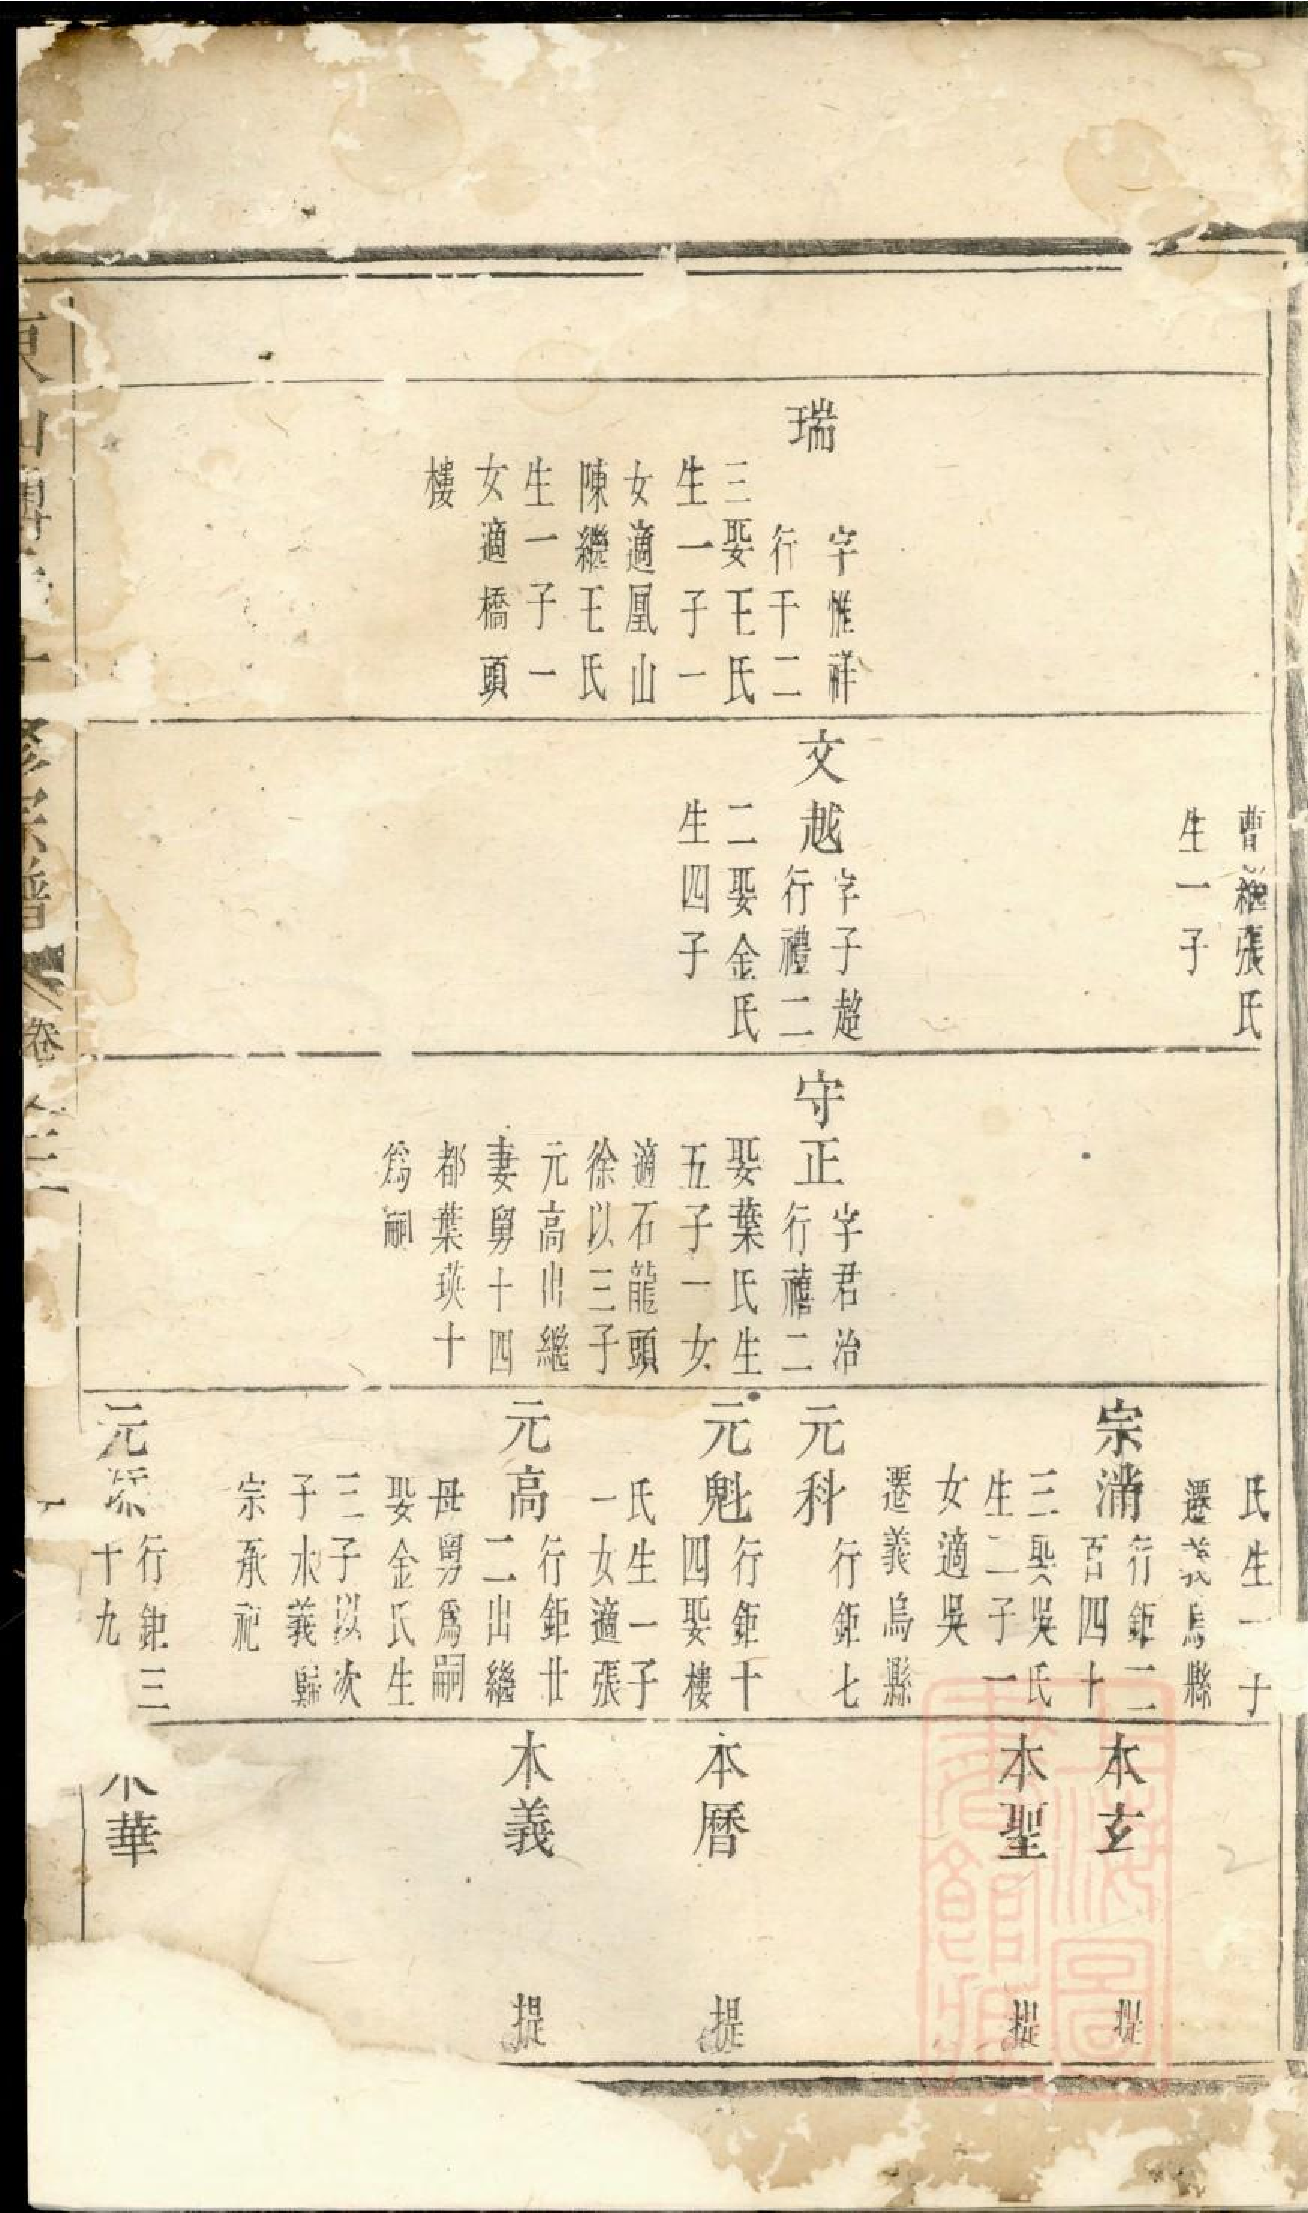 瑞
字惟祥
行千二
三娶王氏
生一子一
女適凰山
陳繼王氏
生一子一
女適橋頭
樓
曹繼張氏
生一子
文越
字子超
行禮二
二娶金氏
生四子
守正
字君治
行禧二
娶葉氏生
五子一女
適石龍頭
徐以三子
元高出繼
妻舅十四
都葉瑛十
爲嗣
氏生一子
遷義烏縣
宗
行鉅二
百四十
三娶吳氏
生二子一
女適吳
遷義烏縣
元科
行鉅七
元魁
行鉅十
四娶樓
氏生一子
一女適張
元高
行鉅廿
二出繼
母舅爲嗣
娶金氏生
三子以次
子木義歸
宗承祀
元
行鉅三
十九
本玄
提
本聖
提
本曆
提
木義
提
華
宗譜
卷
上海圖
書館藏